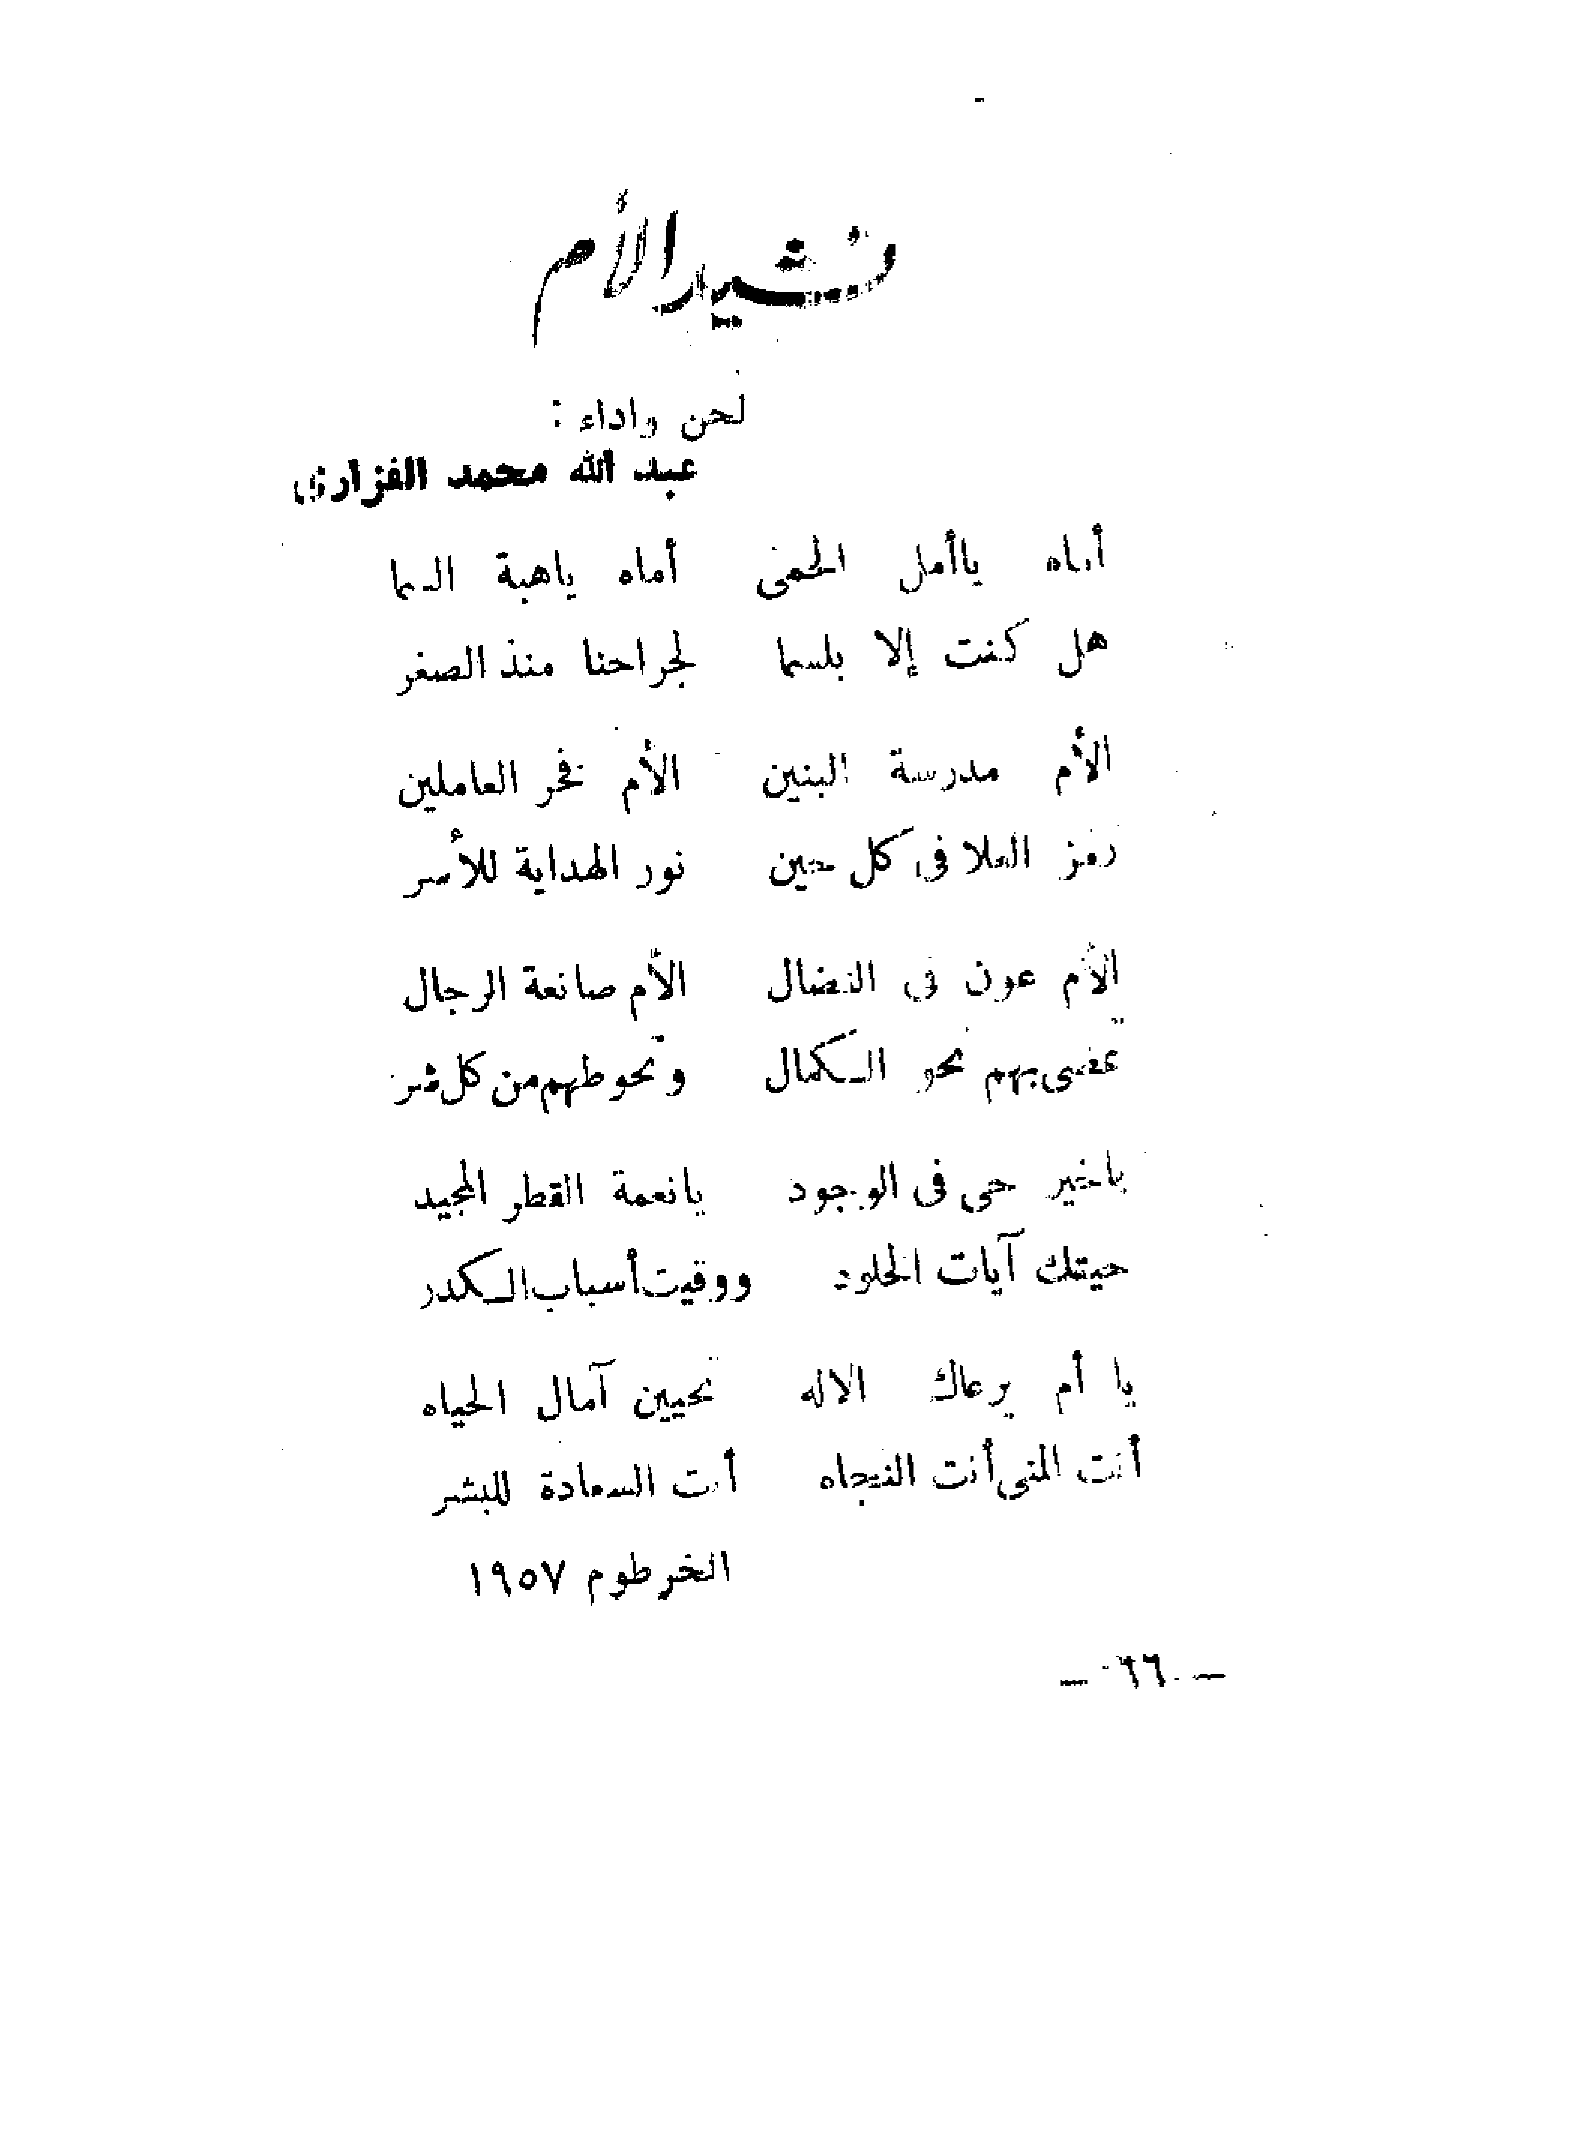 نشيد الأم
لحن واداء :
عبد الله محمد الفزارى
أماه ياأمل الحمى أماه ياهبة السما
هل كنت إلا بلسما لجراحنا منذ الصغر
الأم مدرسة البنين الأم فخر العاملين
رمز العلا فى كل حين نور الهداية للأسر
الأم عون فى النضال الأم صانعة الرجال
تمضى بهم نحو الكمال وتحوطهم من كل شر
ياخير حى فى الوجود يانعمة القطر المجيد
حيتك آيات الخلود ووقيت أسباب الكدر
يا أم يرعاك الاله تحيين آمال الحياه
أنت المنى أنت النجاه أنت السعادة للبشر
الخرطوم ١٩٥٧
— ٦٦ —